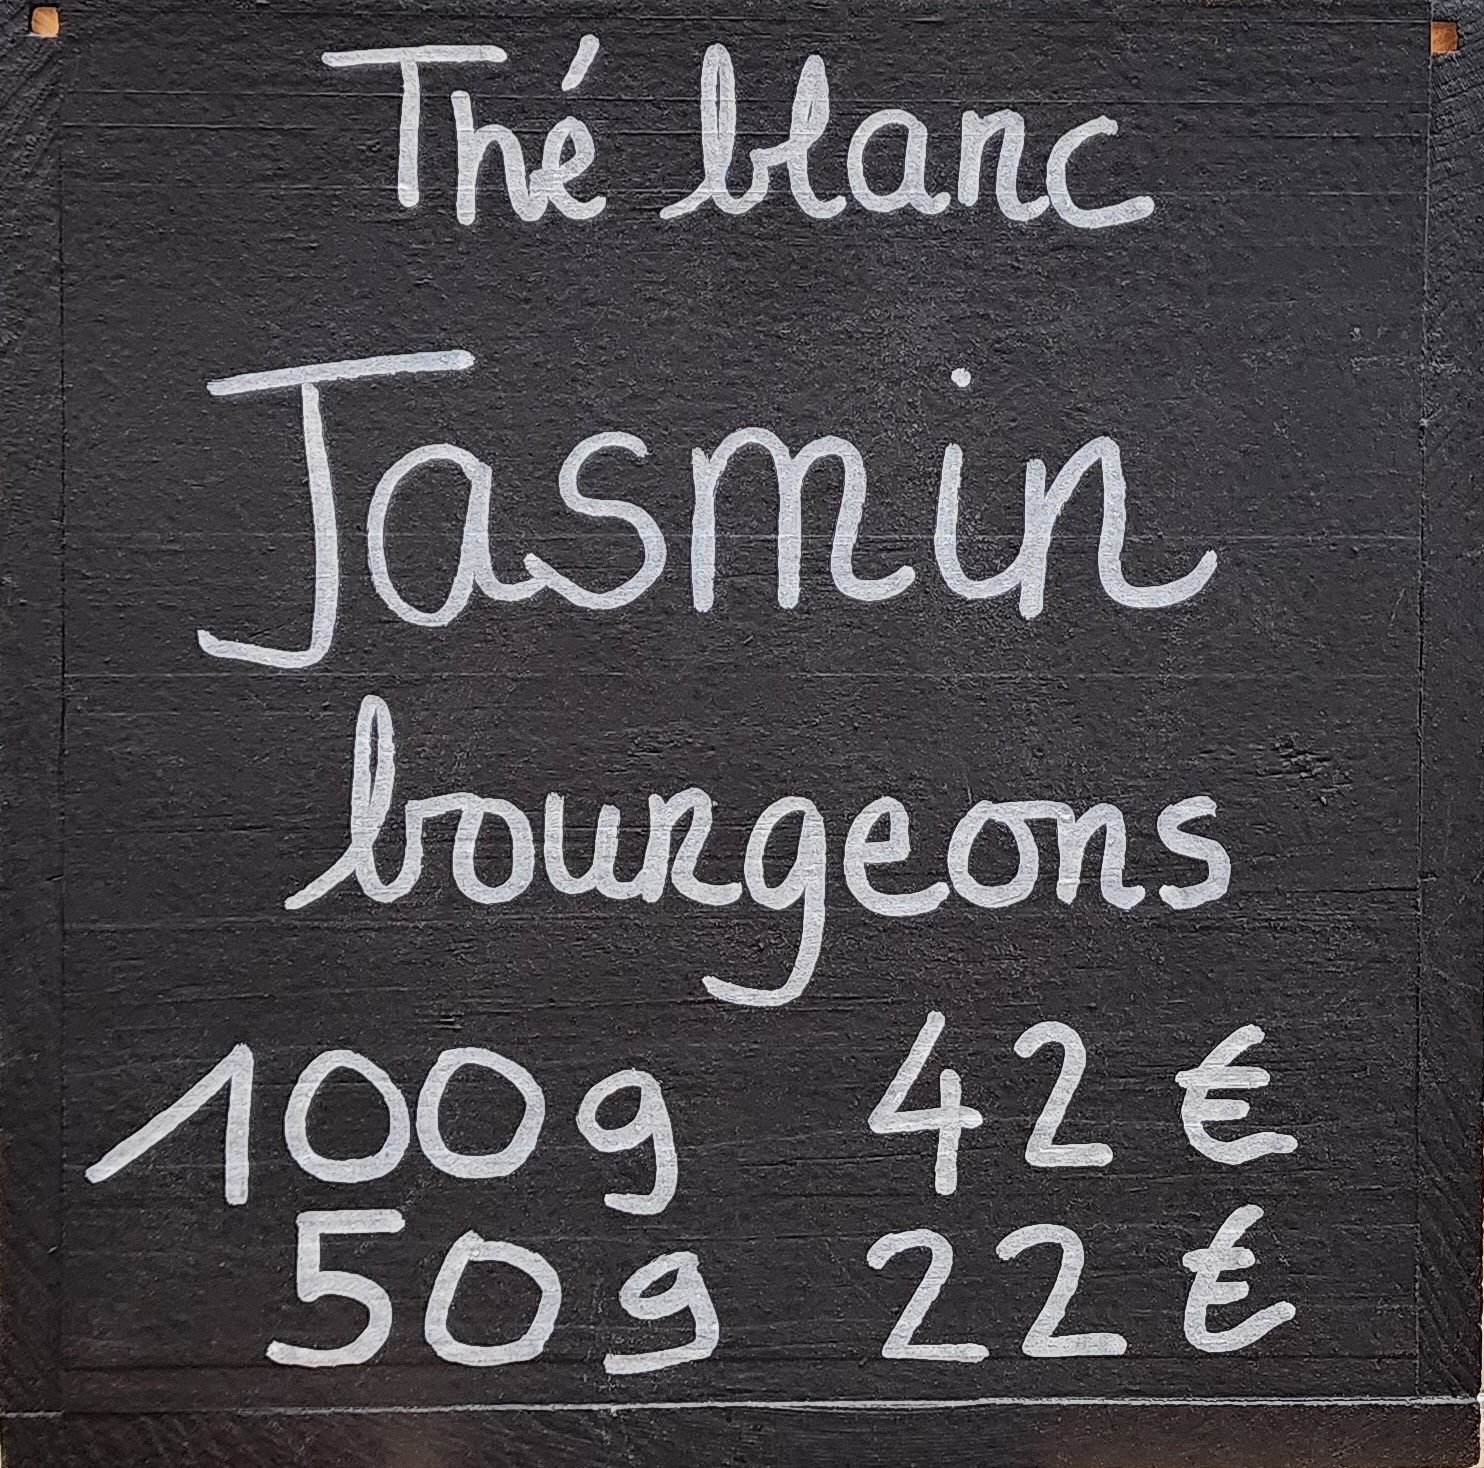 Thé blanc
Jasmin
bourgeons
100g 42 €
50g 22 €